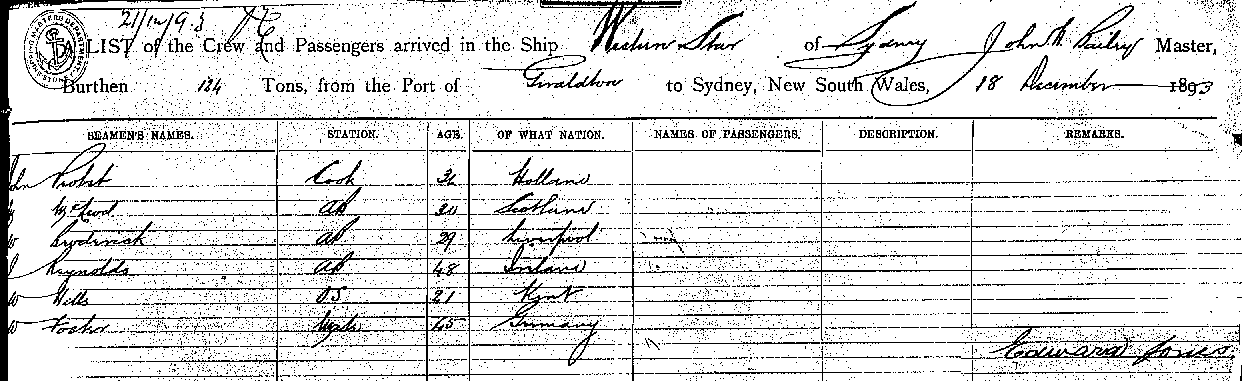 21/12/93
A LIST of the Crew and Passengers arrived in the Ship Western Star of Sydney John Bailey Master,
Burthen 124 Tons, from the Port of Geraldton to Sydney, New South Wales, 18 December 1893
SEAMEN'S NAMES. STATION. AGE. OF WHAT NATION. NAMES OF PASSENGERS. DESCRIPTION. REMARKS.
John Probst Cook Holland
McLeod AB 30 Scotland
W Broderick AB 29 Liverpool
J Reynolds AB 48 Ireland
W Wells OS 21 Kent
W Foster Mate 45 Germany
Edward Jones